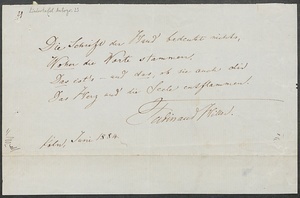 Die Schrift der Hand bedeutet nichts,
Woher die Worte stammen,
Das ist's – und das, ob sie auch dir
Das Herz und die Seele entflammen.
Ferdinand Hiller
Köln, Juni 1884